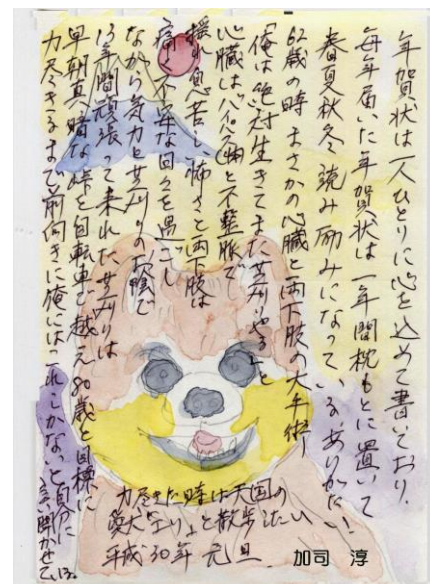 年賀状は一人ひとりに心を込めて書いており、
毎年届いた年賀状は一年間枕もとに置いて
春夏秋冬読み励みになっている。ありがたい!
62歳の時まさかの心臓と両下肢の大手術!
「俺は絶対生きてまた芝刈りやる」と
心臓はバイパス(3本)と不整脈で
揺れ息苦しい怖さと両下肢は
痛い不安な日々を過ごし
ながら気力と芝刈りのお陰で
13年間頑張って来れた芝刈りは
早朝真暗な峠を自転車で越え80歳を目標に
力尽きるまで前向きに俺にはこれしかないと自分に
言い聞かせている。
力尽きた時は天国の
愛犬 と散歩したい
平成30年 元旦
加司 淳